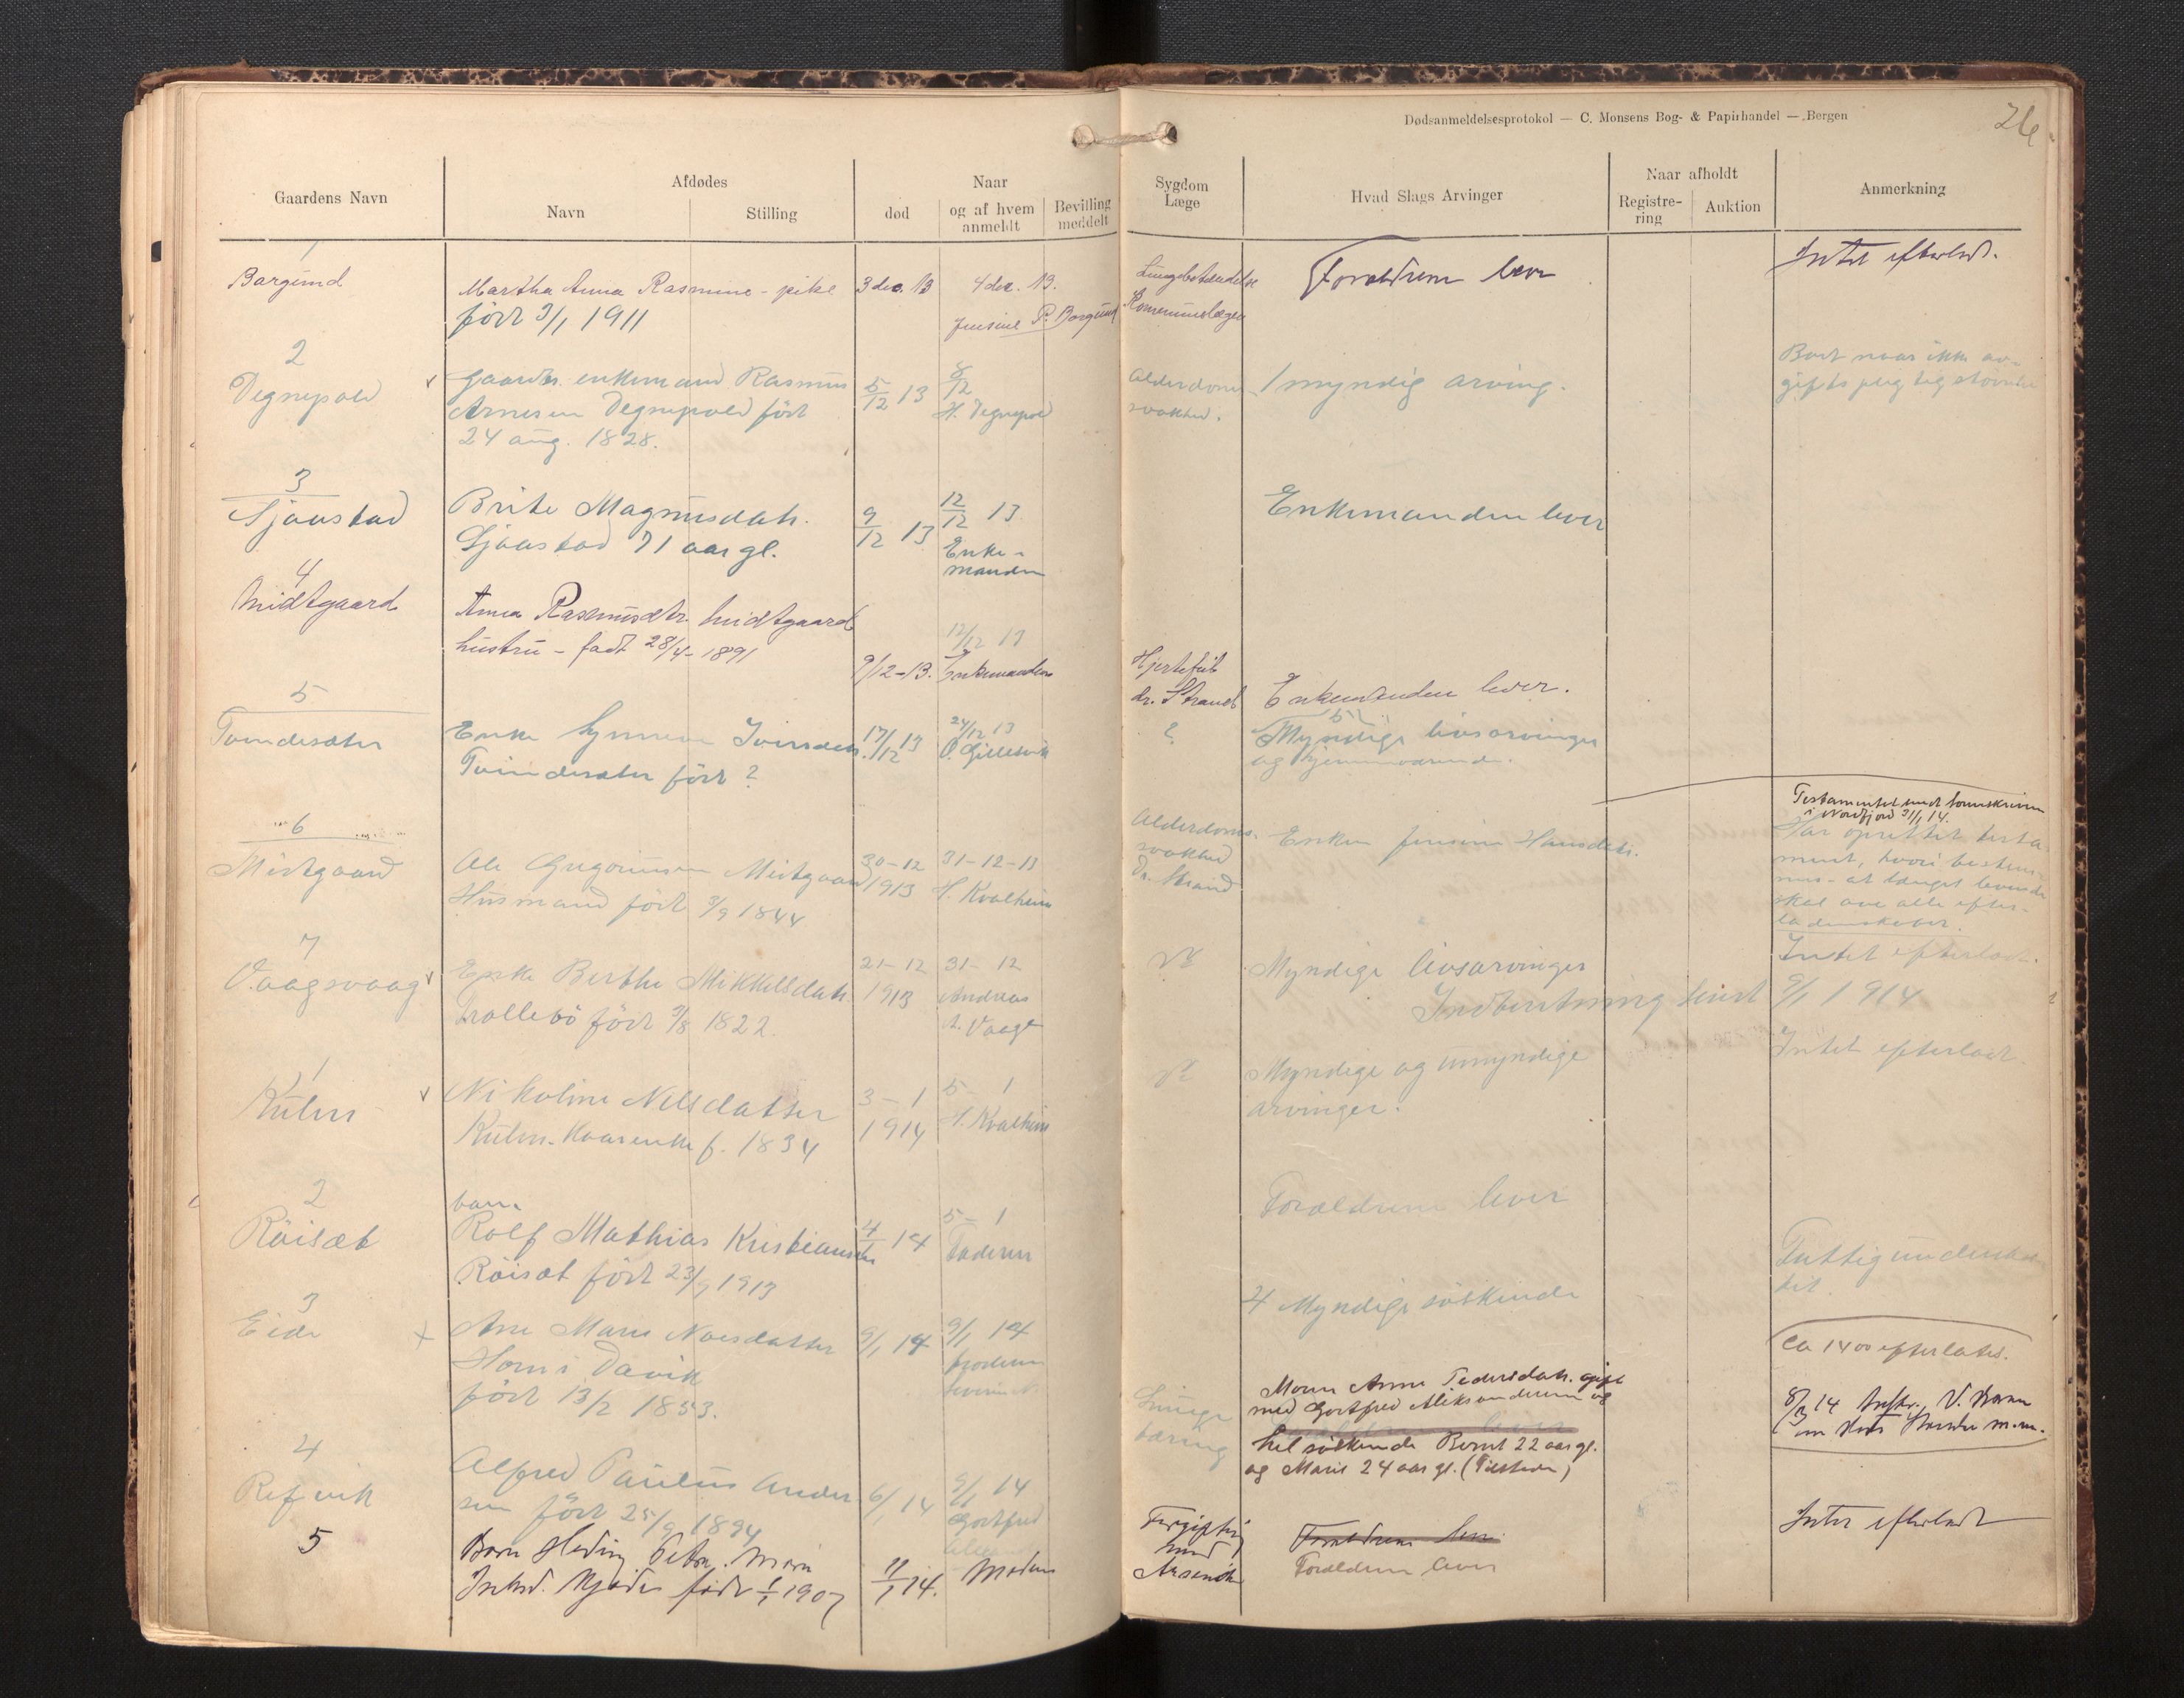 Dødsanmeldelsesprotokol — C. Monsens Bog- & Papirhandel — Bergen
26
Gaardens Navn
Afdødes
Navn
Stilling
død
Naar
og af hvem
anmeldt
Bevilling
meddelt
Sygdom
Læge
Hvad Slags Arvinger
Naar afholdt
Registre-
ring
Auktion
Anmerkning
1
Borgund
Martha Anna Rasmine - pike
født 3/1 1911
3 dec. 13
4 dec. 13.
Jensine P. Borgund
Lungebetændelse
Kommunelægen
Forældrene lever
Intet efterladt.
2
Degnepold
Gaardbr. enkemand Rasmus
Arnesen Degnepold født
24 aug. 1828.
5/12 13
8/12
H. Degnepold
Alderdoms-
svakhed.
1 myndig arving.
Boet naar ikke av-
gifts pligtig størrelse
3
Sjaastad
Brite Magnusdatr.
Sjaastad 71 aar gl.
9/12 13
12/12 13
Enke-
manden
Enkemanden lever
4
Midtgaard
Anna Rasmusdtr. Midtgaard
hustru - født 28/4 - 1891
9/12-13.
12/12 13
Enkemanden
Hjertefeil
dr. Strand
Enkemanden lever.
5
Tvindesæter
Enke Iversdatr.
Tvindesæter født ?
17/12 13
24/12 13
O. Gillesvik
?
5
Myndige livsarvinger
og hjemmeværende.
6
Midtgaard
Ole Gregoriussen Midtgaard
Husmand født 3/9 1844
30-12
1913
31-12-13
H. Kvalheim
Alderdoms-
svakhed
Dr. Strand
Enken Jensine Hansdatr.
Testamentet sendt sorenskriveren
i Nordfjord 3/1 14.
Har oprettet testa-
ment, hvori bestem-
mes - at længst levende
skal ave alle efter-
ladenskaber.
7
Vaagsvaag
Enke Berthe Mikkelsdatr.
Trollebø født 9/8 1822.
21-12
1913
31-12
Andreas
Vaage
Myndige livsarvinger
Indberetning sendt 9/1 1914
Intet efterladt.
1
Kulen
Nikoline Nilsdatter
Kulen. Kaarenke f. 1834
3-1
1914
5-1
H. Kvalheim
Myndige og umyndige
arvinger.
Intet efterladt.
2
Røisæt
barn
Rolf Mathias Kristiansen
Røisæt født 23/9 1913
4/1 14
5-1
Faderen
Forældrene lever
3
Eide
Ane Marie Nilsdatter
Hom i Davik
født 13/2 1853.
9/1 14
9/1 14
broderen
4 Myndige søskende
Fattigunderstø-
tet.
Ca 1400 efterlates.
4
Refvik
Alfred Paulus Ander
sen født 25/9 1894
6/1 14
9/1 14
Gotfred
Lunge
tæring
Moren Anne Pedersdatr. gift
med Gotfred Aleksandersen og
hel søskende Bernt 22 aar gl.
og Marie 24 aar gl. (Tilstede)
5
Barn Hedvig Petra Marie
født 1/1 1907
11/1 14.
Moderen
Forgiftning
med
Arsenik
Forældrene lever
Forældrene lever
Intet efterladt